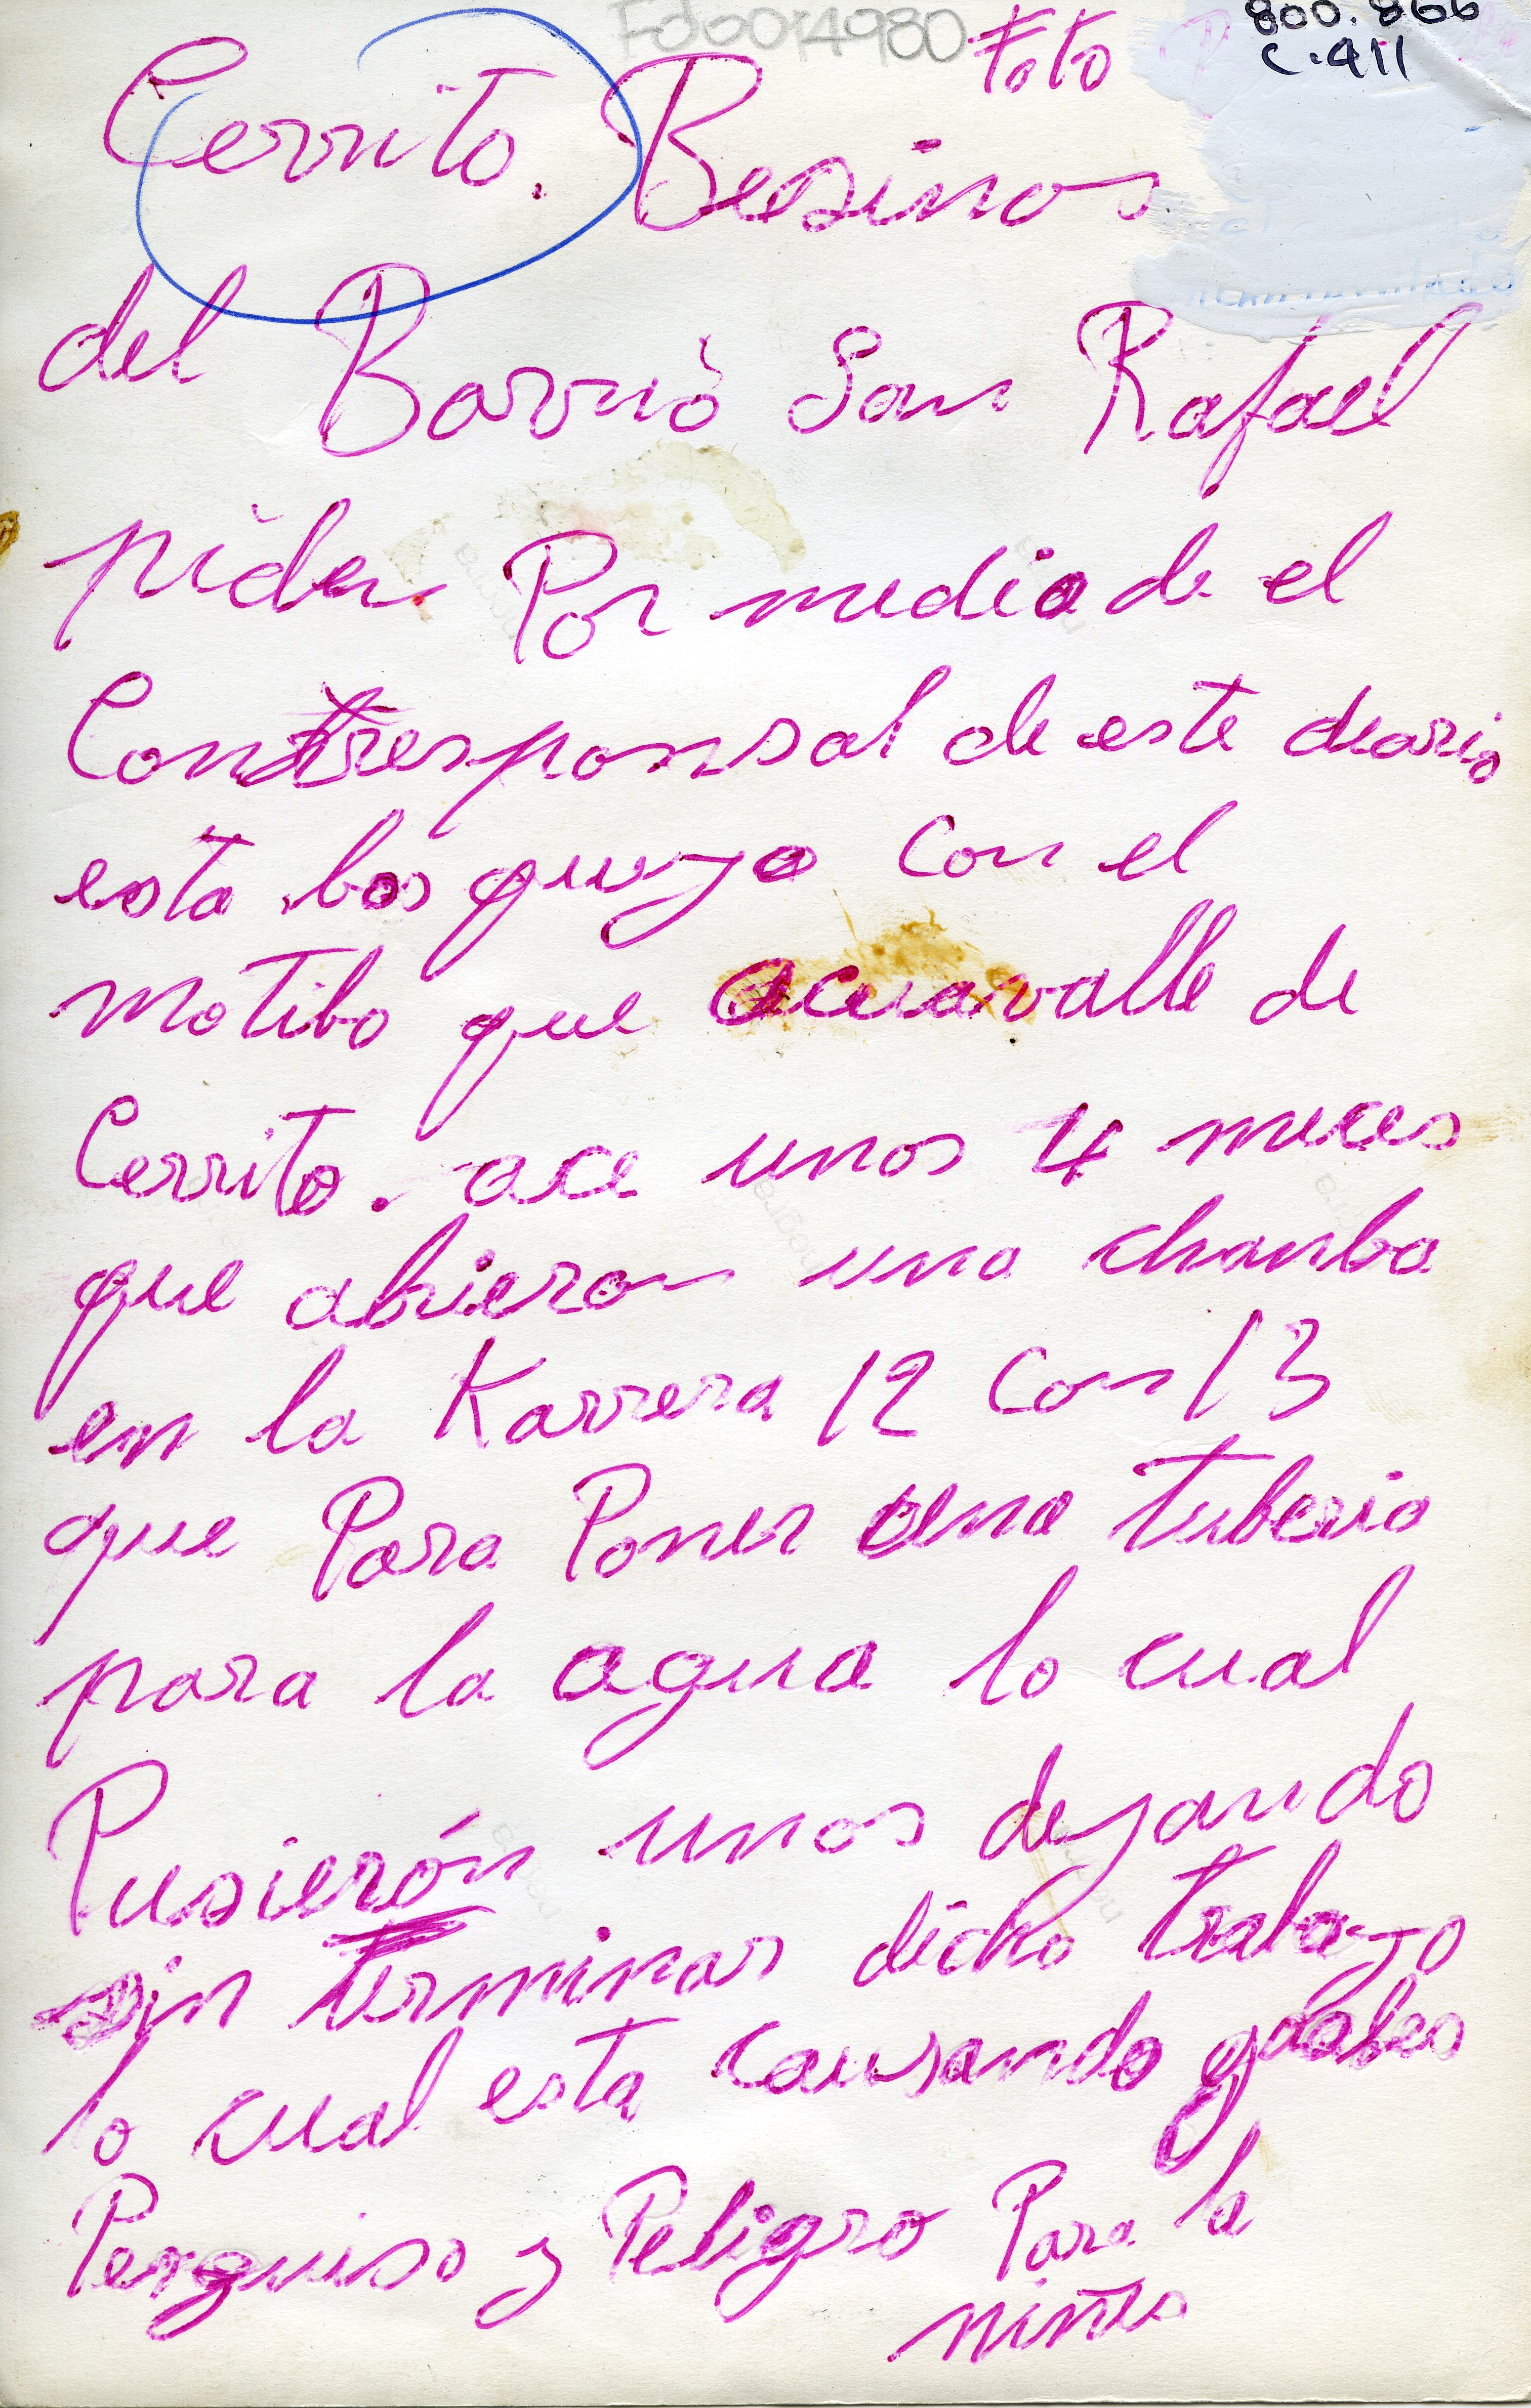 Fdo014980
Foto
800.866
C.411
Cerrito. Besinos
del Barriò San Rafael
piden Por medio de el
Contresponsal de este diario
esta bos queja con el
motibo que acuavalle de
Cerrito. ace unos 4 meces
que abieron una chanba
en la Karrera 12 con 13
que Para Poner una tuberia
para la agua lo cual
Pusierón unos dejando
sin terminar dicho trabajo
lo cual esta causando grabes
Perguiso y Peligro Para la
niñes